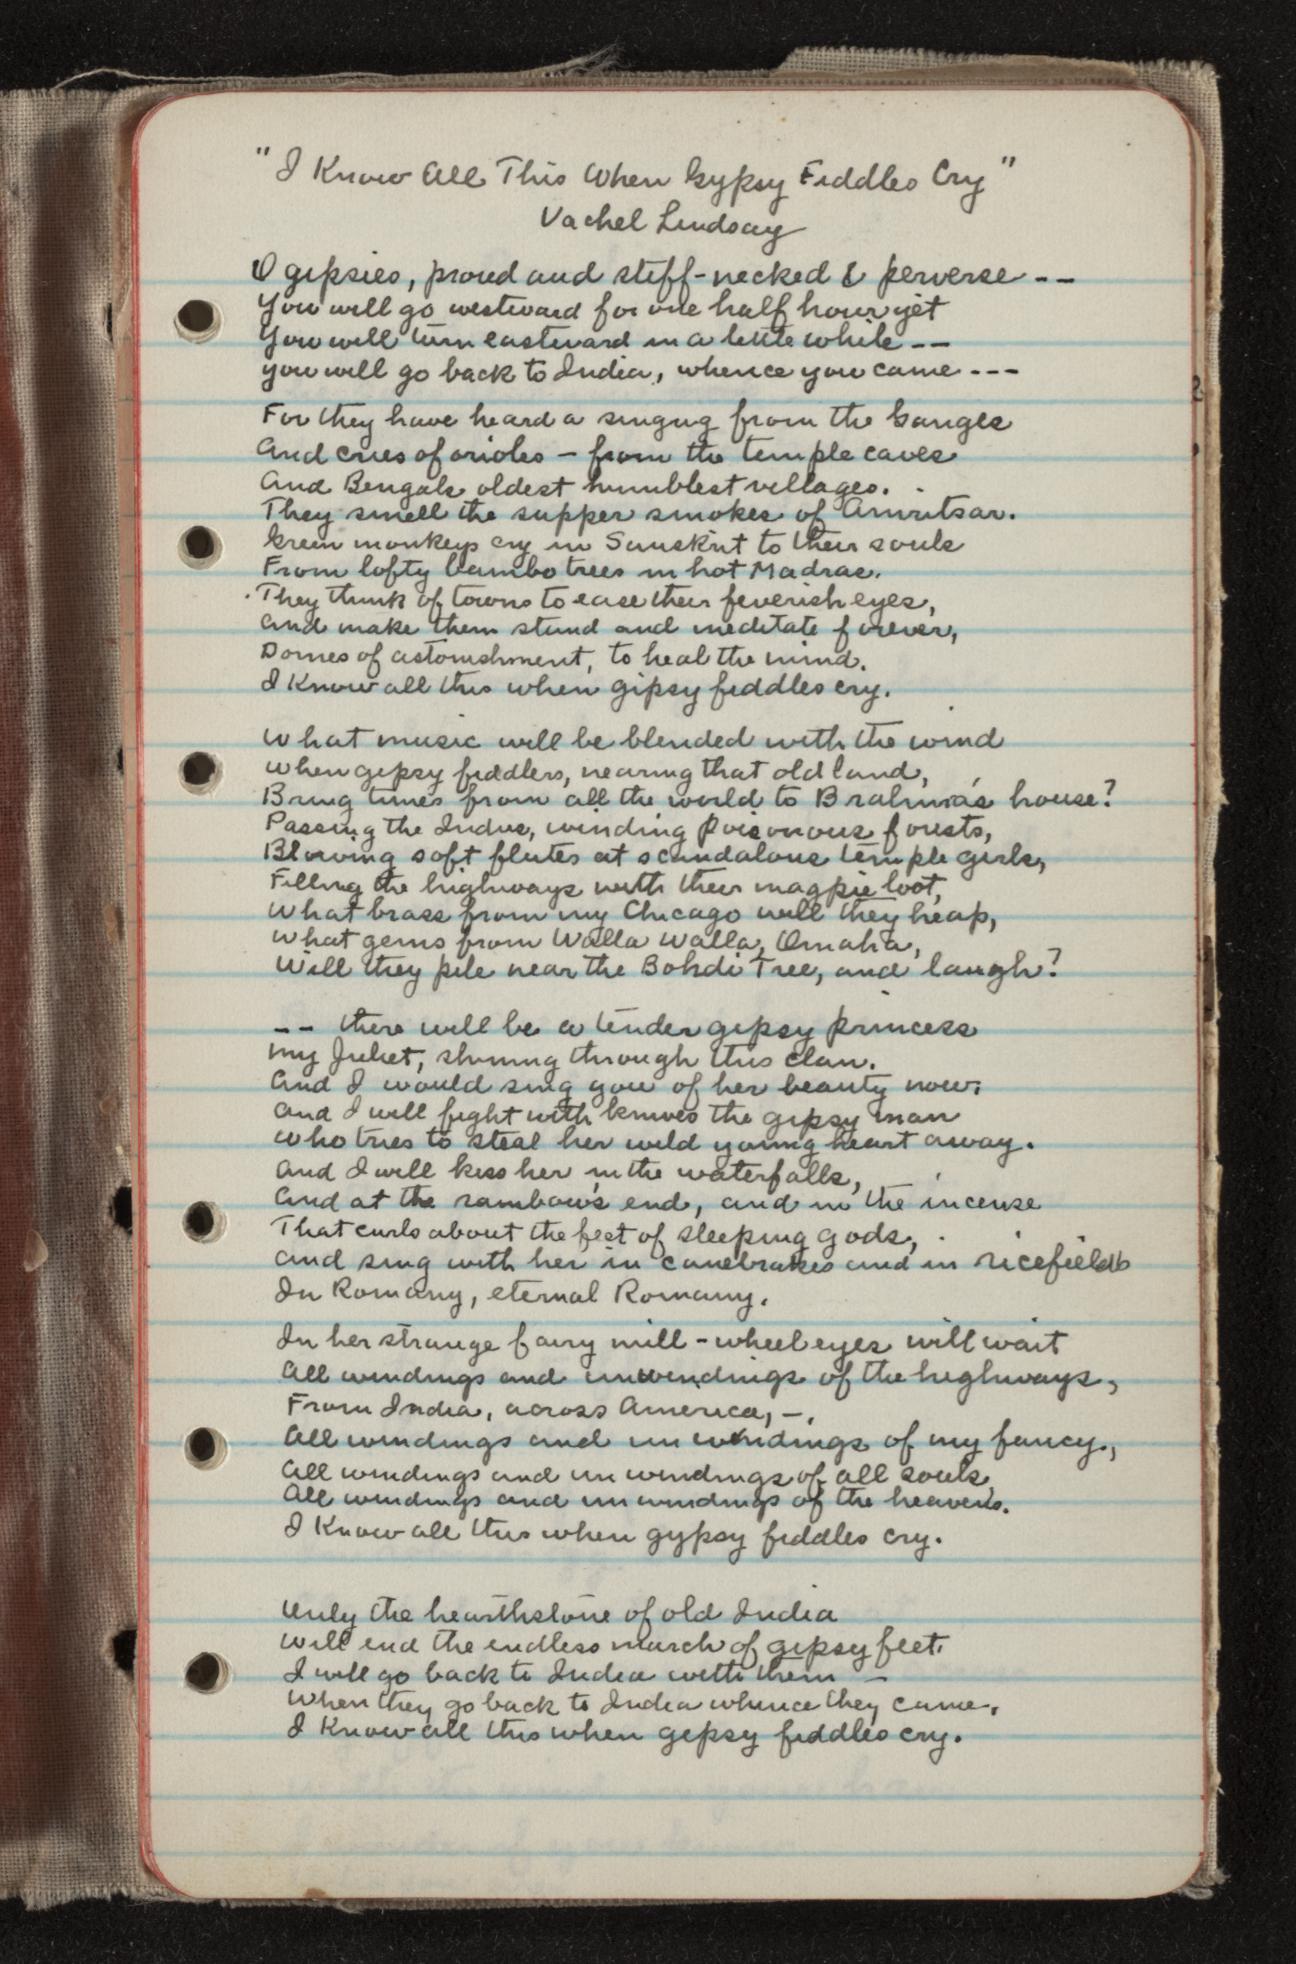 "I Know All This When Gypsy Fiddles Cry"
Vachel Lindsay
O gipsies, proud and stiff-necked & perverse --
You will go westward for one half hour yet
You will turn eastward in a little while --
you will go back to India, whence you came ---
For they have heard a singing from the Ganges
And cries of orioles - from the temple caves
And Bengals oldest humblest villages.
They smell the supper smokes of Amritsar.
Green monkeys cry in Sanskrit to their souls
From lofty bambo trees in hot Madras.
They think of towns to ease their feverish eyes,
And make them stand and meditate forever,
Domes of astonishment, to heal the mind.
I Know all this when gipsy fiddles cry.
What music will be blended with the wind
when gipsy fiddlers, nearing that old land,
Bring tunes from all the world to Brahma's house?
Passing the Indus, winding poisonous forests,
Blowing soft flutes at scandalous temple girls,
Filling the highways with their magpie loot,
What brass from my Chicago will they heap,
What gems from Walla Walla, Omaha,
Will they pile near the Bohdi Tree, and laugh?
-- there will be a tender gipsy princess
My Juliet, shining through this clan.
And I would sing you of her beauty now.
And I will fight with knives the gipsy man
who tries to steal her wild young heart away.
And I will kiss her in the waterfalls,
And at the rainbow's end, and in the incense
That curls about the feet of sleeping gods,
And sing with her in canebrakes and in ricefields
In Romany, eternal Romany.
In her strange fairy mill-wheel eyes will wait
All windings and unwindings of the highways,
From India, across America, -.
All windings and unwindings of my fancy.,
All windings and unwindings of all souls
All windings and unwindings of the heavens.
I Know all this when gypsy fiddles cry.
Only the hearthstone of old India
Will end the endless march of gipsy feet.
I will go back to India with them -
When they go back to India whence they came.
I Know all this when gipsy fiddles cry.